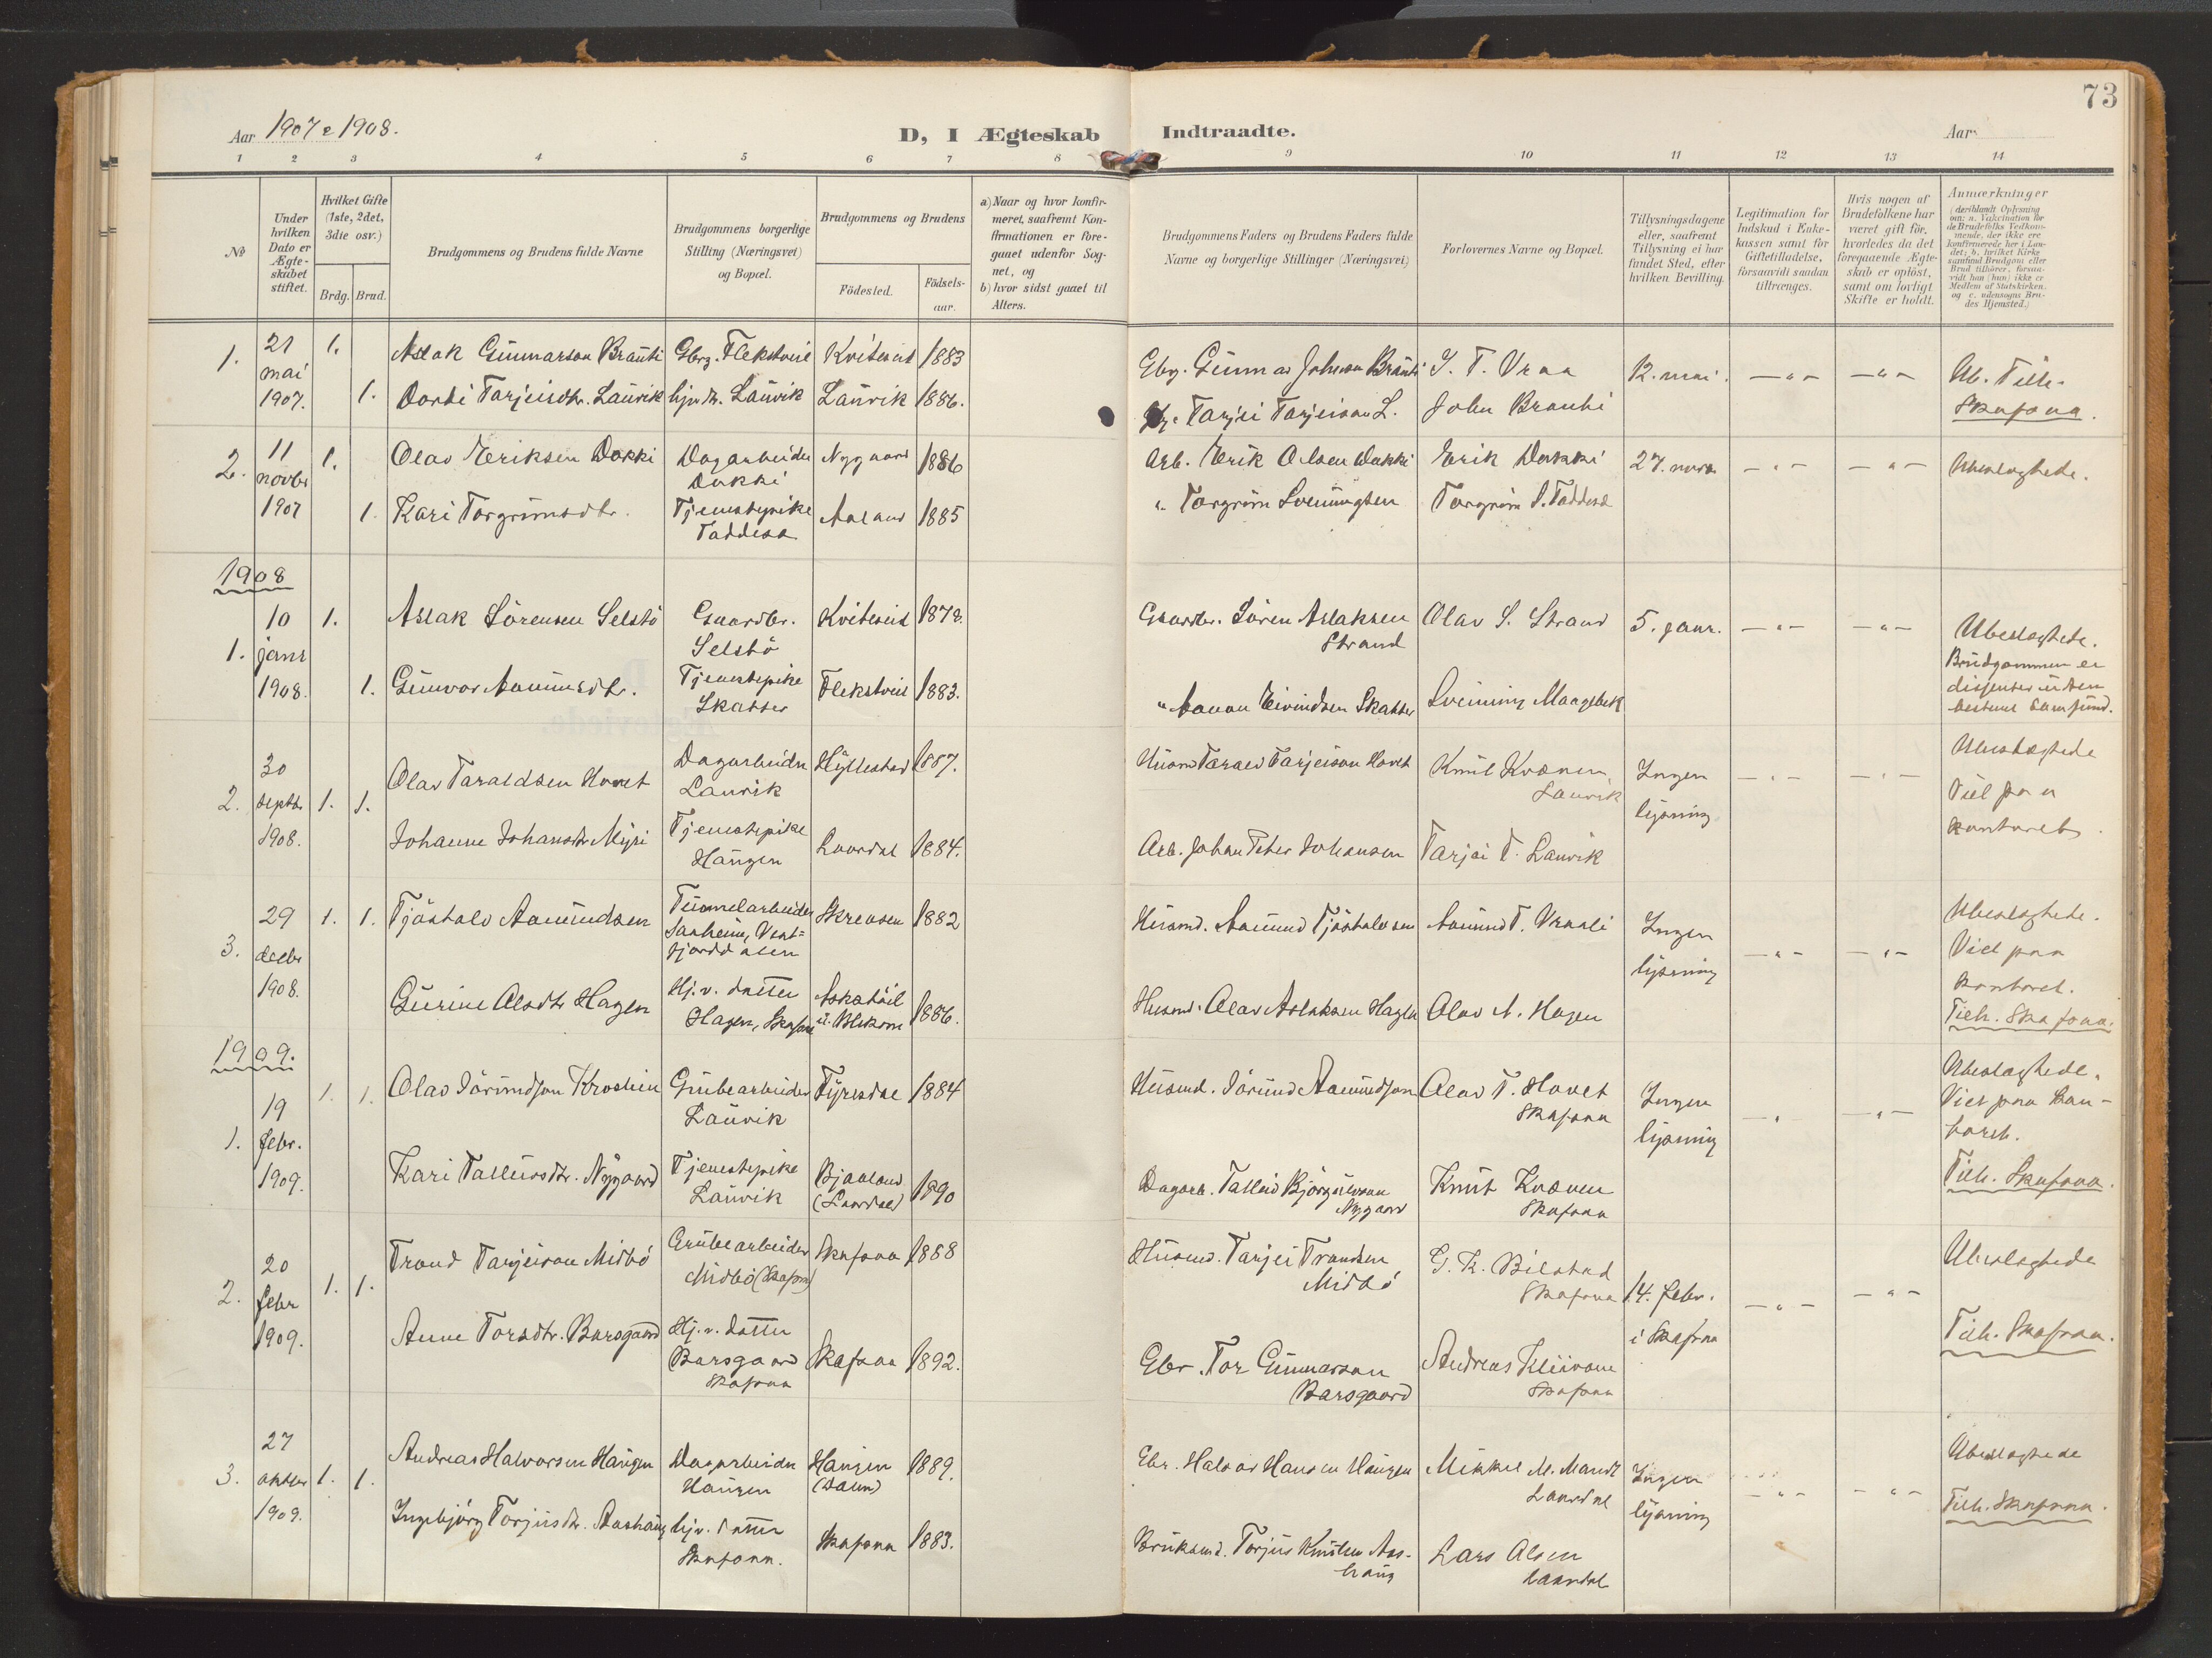 73
Aar 1907 & 1908.
D, I Ægteskab Indtraadte.
Aar
1 2 3 4 5 6 7 8 9 10 11 12 13 14
№
Under hvilken Dato er Ægteskabet stiftet.
Hvilket Gifte (1ste, 2det, 3die osv.)
Brdg. Brud.
Brudgommens og Brudens fulde Navne
Brudgommens borgerlige Stilling (Næringsvei) og Bopæl.
Brudgommens og Brudens
Fødested.
Fødselsaar.
a) Naar og hvor konfirmeret, saafremt Konfirmationen er foregaaet udenfor Sognet, og
b) hvor sidst gaaet til Alters.
Brudgommens Faders og Brudens Faders fulde Navne og borgerlige Stillinger (Næringsvei)
Forlovernes Navne og Bopæl.
Tillysningsdagene eller, saafremt Tillysning ei har fundet Sted, efter hvilken Bevilling.
Legitimation for Indskud i Enkekassen samt for Giftetilladelse, forsaavidt saadan tiltrænges.
Hvis nogen af Brudefolkene har været gift før, hvorledes da det foregaaende Ægteskab er opløst, samt om lovligt Skifte er holdt.
Anmærkninger (deriblandt Oplysning om: a. Vakcination for de Brudefolks Vedkommende, der ikke ere konfirmerede her i Landet; b. hvilket Kirkesamfund Brudgom eller Brud tilhører, forsaavidt han (hun) ikke er Medlem af Statskirken, og c. udensogns Brudes Hjemsted.)
1. 21 mai 1907. 1. Aslak Gunnarson Brauti Gbrg. Flekstveit Kviteseid 1883 Gbrg. Gunnar Johnson Brauti J. T. Vraa 12. mai. — " — — " — Ub. Tilh. Skafsaa.
1. Dordi Tarjeisdtr. Lauvik hjv. dtr. Lauvik Lauvik 1886. Tarjei Tarjeison L. John Brauti
2. 11 novbr 1907 1. Olav Eriksen Dokki Dagarbeider Dokki Nygaard 1886 Arb. Erik Olsen Dokki Erik Dokki 27. — " — — " — Ubeslægtede.
1. Kari Torgrimsdtr. Tjenestepike Taddesa Aaland 1885 " Torgrim Sveinungsen Torgrim S. Taddesa
1908
1. 10 janr 1908. 1. Aslak Sörensen Selstö Gaardbr. Selstö Kviteseid 1878. Gaardbr. Sören Aslaksen Strand Olav S. Strand 5. janr. — " — — " — Ubeslægtede. Brudgommen er dissenter uden bestemt Samfund.
1. Gunvor Aanundsdtr. Tjenestepike Skatter Flekstveit 1883. " Aanon Eivindsen Skatter Sveinung Maagerbek
2. 30 septbr 1908. 1. 1. Olav Taraldsen Hovet Dagarbeider Lauvik Hyllestad 1887. Husmd Tarald Tarjeison Hovet Knut Kvænen, Lauvik Ingen lysning — " — — " — Ubeslægtede Viet paa kontoret.
Johanne Johansdtr Myri Tjenestepike Haugen Laardal 1884. Arb. Johan Peter Johansen Tarjei T. Lauvik
3. 29 decbr 1908. 1. 1. Tjöstolv Aanundsen Tunnelarbeider Saaheim, Vestfjorddalen Skrevsen 1882 Husmd. Aanund Tjöstolvsen Aanund T. Vraali Ingen lysning — " — — " — Ubeslægtede. Viet paa kontoret. Tilh. Skafsaa.
Gurine Olsdtr Hagen Hj.v. datter Hagen, Skafsaa 1886. Husmd. Olav Aslaksen Hagen Olav A. Hagen
1909.
1. 19 febr. 1909. 1. 1. Olav Jörundson Kroshein Grubearbeider Lauvik Fyresdal 1884 Husmd. Jörund Aanundson Olav T. Hovet Skafsaa Ingen lysning — " — " — Ubeslægtede. Viet paa kontoret. Tilh. Skafsaa.
Kari Tallevsdtr. Nygaard Tjenestepike Lauvik Bjaaland (Laardal) 1890 Dagarb. Talleiv Björgulvson Nygaard Knut Kvænen Skafsaa
2. 20 febr 1909. 1. 1. Trond Tarjeison Midbö Grubearbeider Midbö (Skafsaa) Skafsaa 1888 Husmd. Tarjei Trondsen Midbö G. K. Bilstad Skafsaa 14. febr. i Skafsaa — " — — " — Ubeslægtede Tilh. Skafsaa.
Anne Torsdtr. Barsgaard Hj.v. datter Barsgaard Skafsaa Skafsaa 1892. Gbr. Tor Gunnarson Barsgaard Andreas Kleivane Skafsaa
3. 27 oktober 1909. 1. 1. Andreas Halvorsen Haugen Dagarbeider Haugen Haugen (Dalen) 1889. Gbr. Halvor Hansen Haugen Mikkel M. Mandt Laardal Ingen lysning — " — — " — Ubeslægtede Tilh. Skafsaa.
Ingebjörg Torjusdtr. Aashaug hjv. datter Skafsaa. Skafsaa 1883. Bruksmd. Torjus Knutsen Aashaug Lars Olsen Laardal